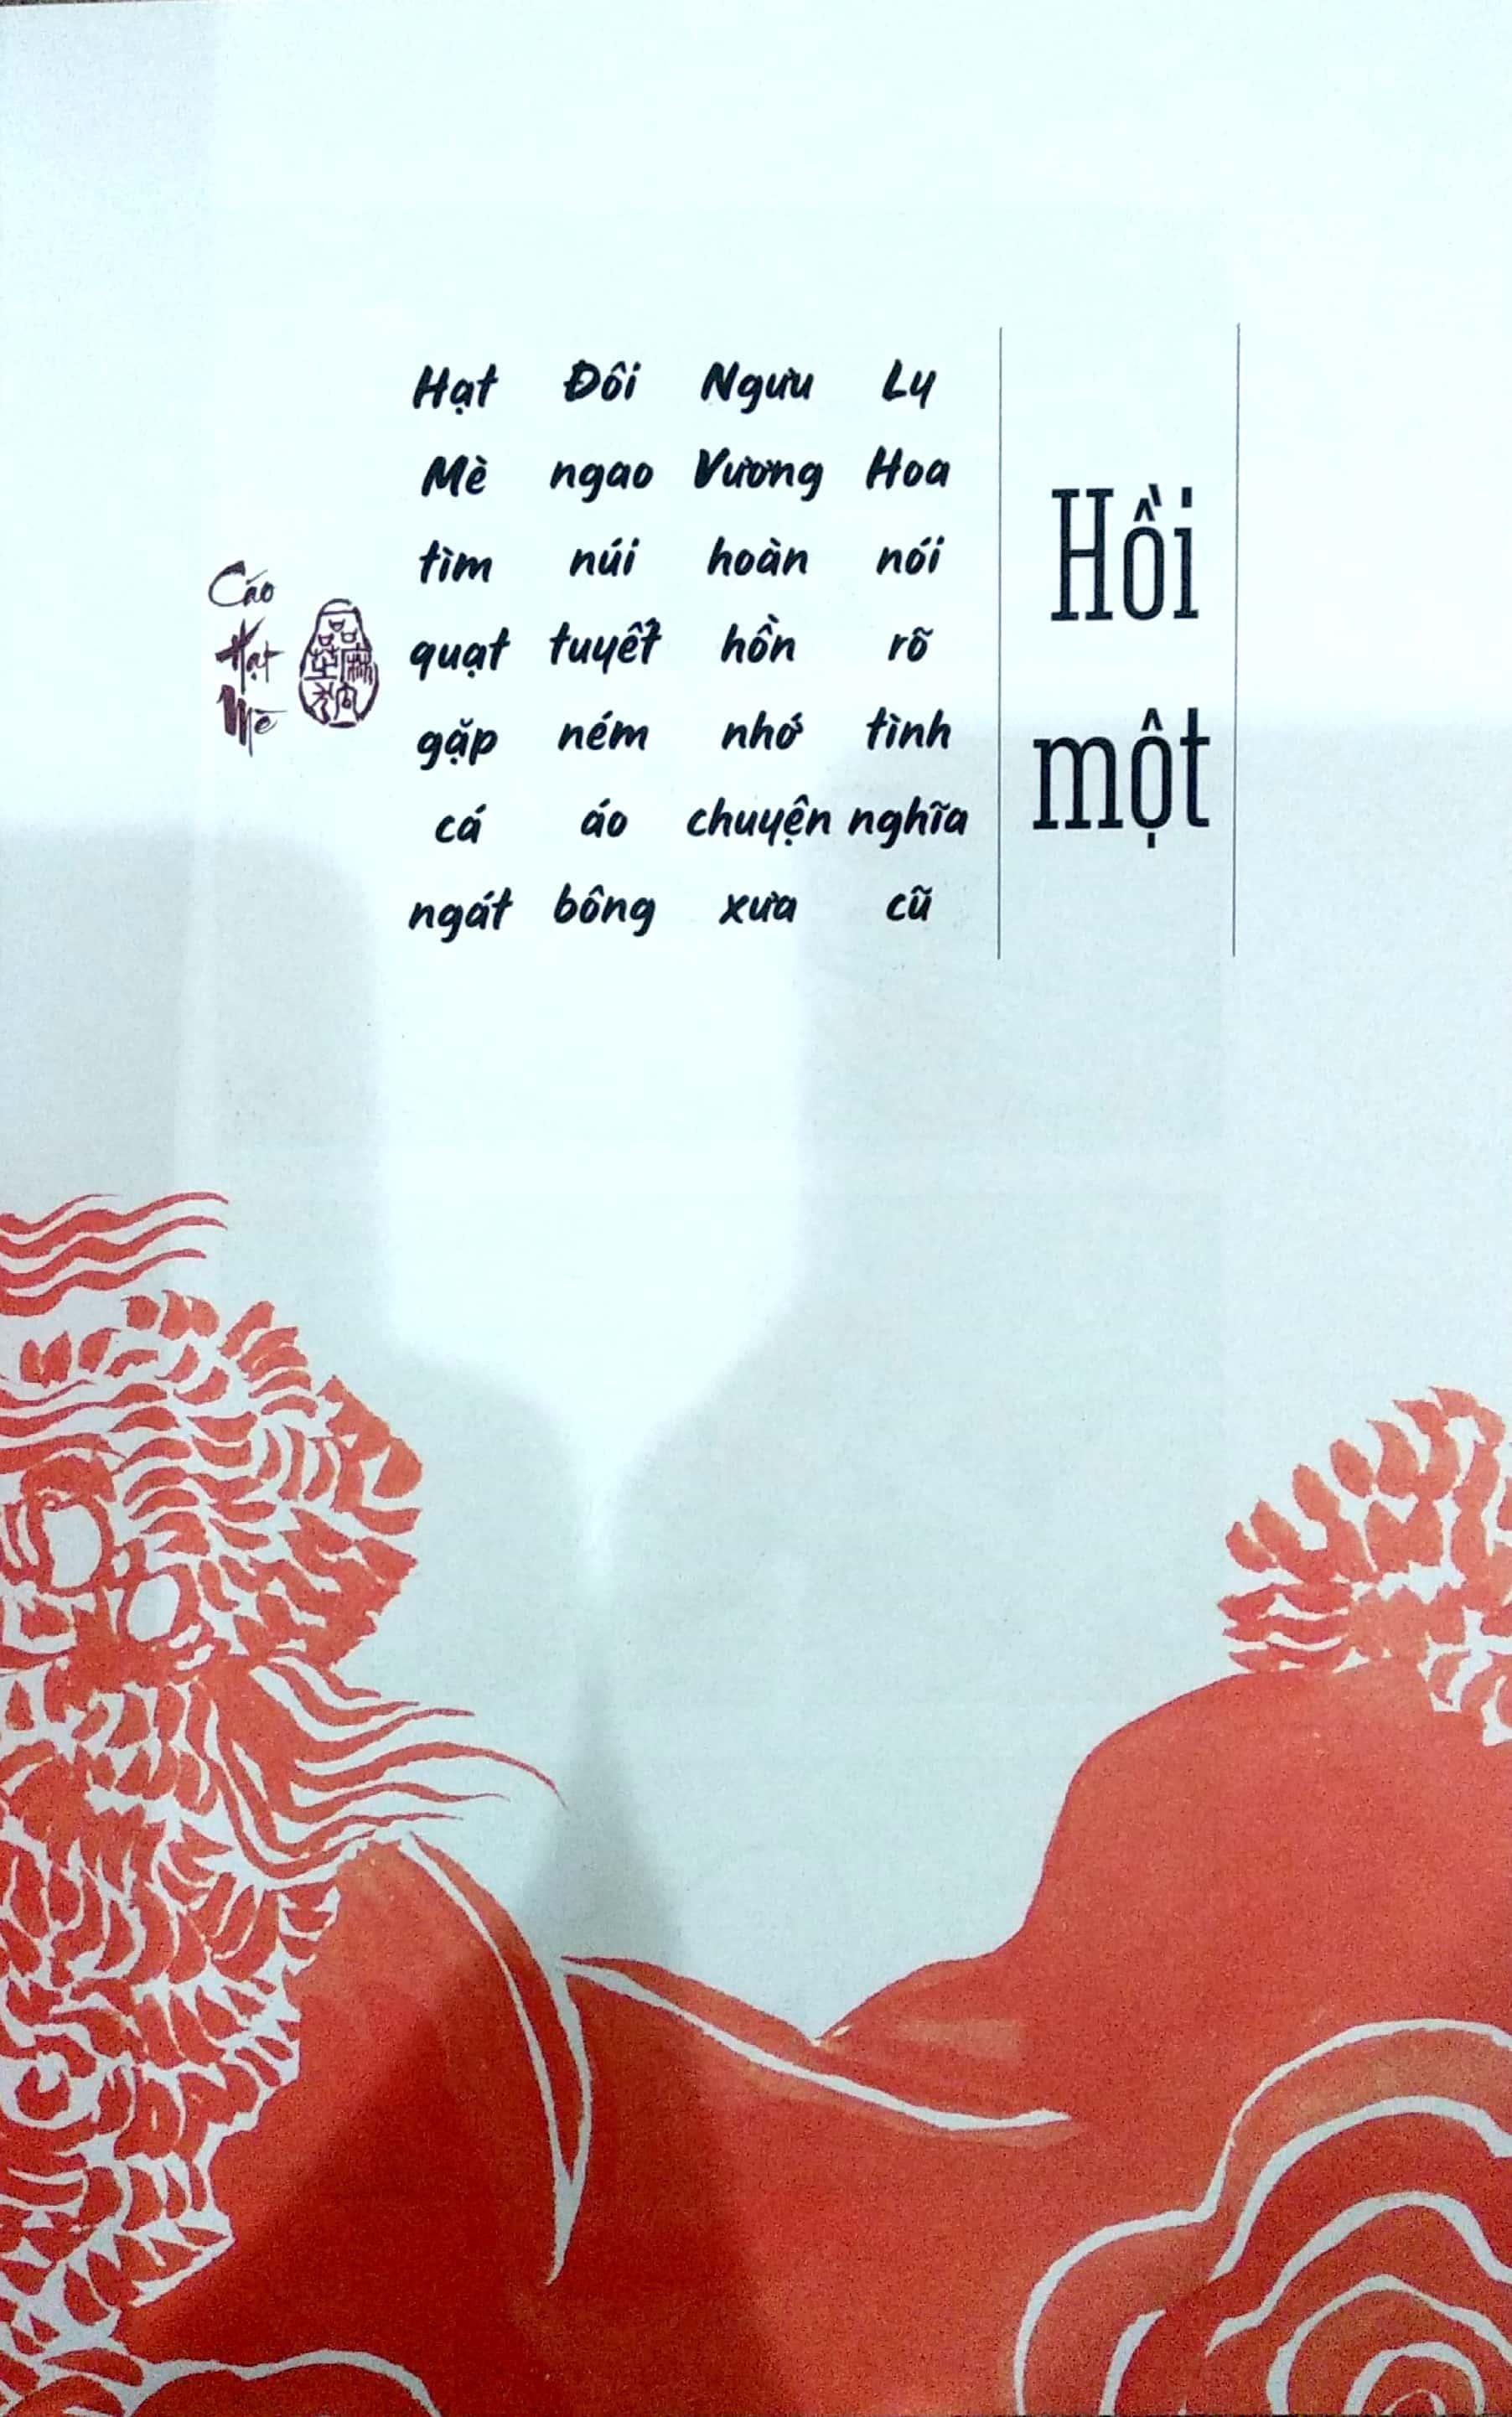 Hồi một
Ly Hoa nói rõ tình nghĩa cũ
Ngưu Vương hoàn hồn nhớ chuyện xưa
Đôi ngao núi tuyết ném áo bông
Hạt Mè tìm quạt gặp cá ngát
Cáo Hạt Mè